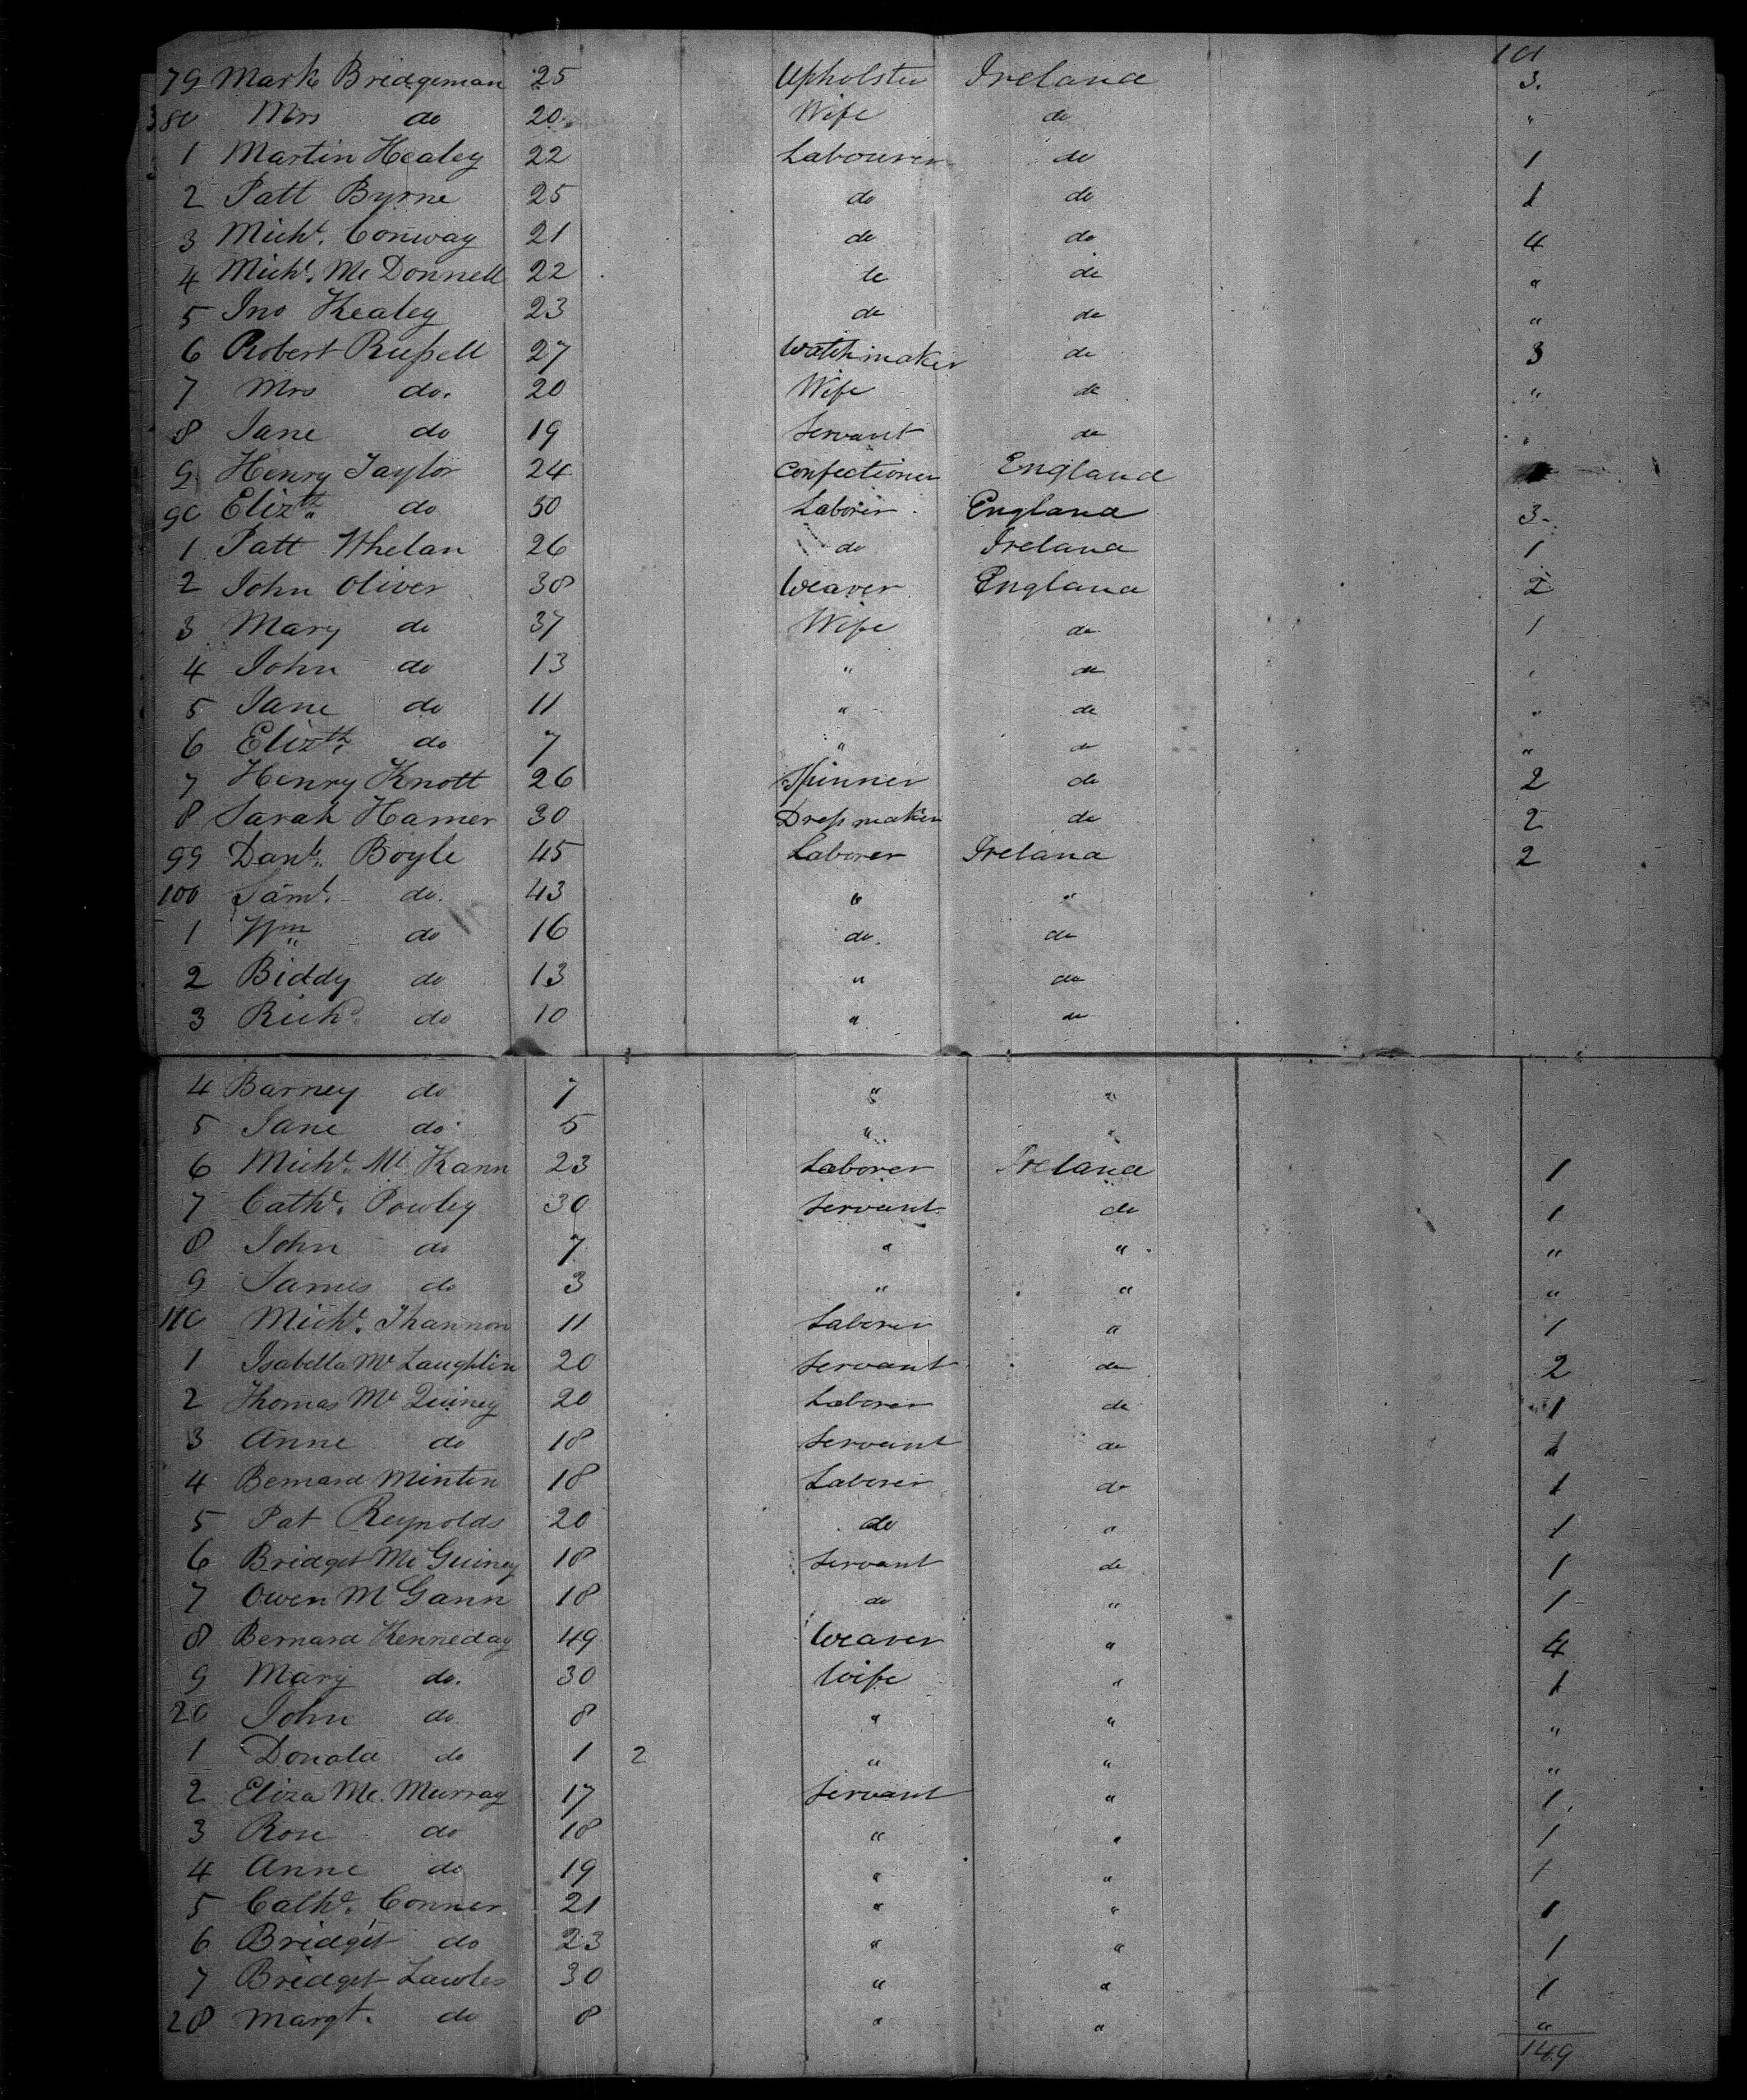 101
79 Mark Bridgeman 25 Upholster Ireland 3.
380 Mrs do 20 Wife do "
1 Martin Healey 22 Labourer do 1
2 Patt Byrne 25 do do 1
3 Michl. Conway 21 do do 4
4 Michl. Mc Donnell 22 do do "
5 Jno Kealey 23 do do "
6 Robert Russell 27 Watchmaker do 3
7 Mrs do. 20 Wife do "
8 Jane do 19 Servant do "
9 Henry Taylor 24 Confectioner England
90 Elizth. do 50 Laborer England 3
1 Patt Whelan 26 do Ireland 1
2 John Oliver 38 Weaver England 2
3 Mary do 37 Wife do 1
4 John do 13 " do "
5 Jane do 11 " do "
6 Elizth. do 7 " do "
7 Henry Knott 26 Spinner do 2
8 Sarah Hamer 30 Dressmaker do 2
99 Danl. Boyle 45 Laborer Ireland 2
100 Saml. do. 43 " "
1 Wm do 16 do. do
2 Biddy do 13 " do
3 Richd. do 10 " do
4 Barney do 7 " "
5 Jane do 5 " "
6 Michl. Mc Kann 23 Laborer Ireland 1
7 Cathe. Powley 30 Servant do 1
8 John do 7 " " "
9 James do 3 " " "
110 Michl. Shannon 11 Laborer " 1
1 Isabella Mc Laughlin 20 Servant do 2
2 Thomas Mc Quiney 20 Laborer do 1
3 Anne do 18 Servant do 1
4 Bernard Minten 18 Laborer do 1
5 Pat Reynolds 20 do " 1
6 Bridget Mc Guiney 18 Servant do 1
7 Owen M Gann 18 do " 1
8 Bernard Kenneday 49 Weaver " 4
9 Mary do. 30 Wife " 1
20 John do 8 " " "
1 Donald do 1 2 " " "
2 Eliza Mc. Murray 17 Servant " 1
3 Rose do 18 " " 1
4 Anne do 19 " " 1
5 Cathe. Conner 21 " " 1
6 Bridget do 23 " " 1
7 Bridget Lawles 30 " " 1
28 Margt. do 8 " " "
149